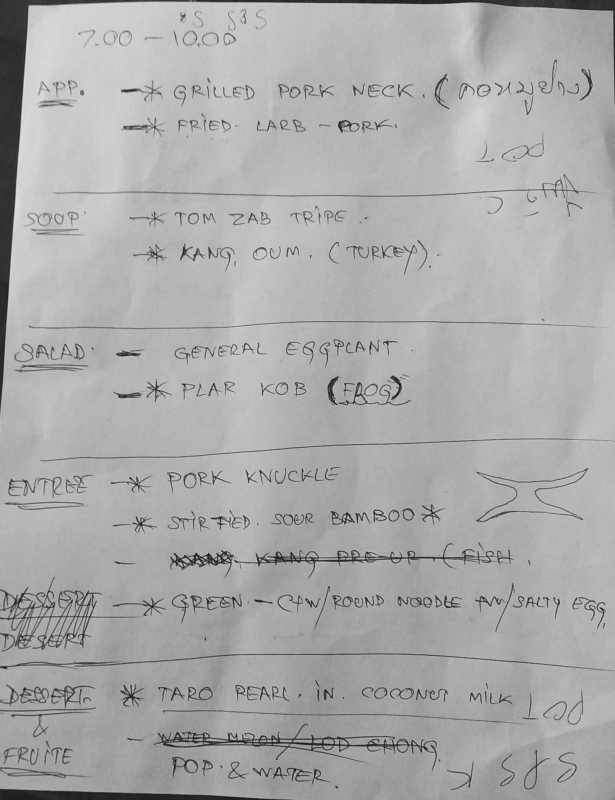 7.00 – 10.00
APP. –* GRILLED PORK NECK. (คอหมูย่าง)
–* FRIED. LARB – PORK.
SOUP –* TOM ZAB TRIPE.-
–* KANG. OUM. (TURKEY).
SALAD – GENERAL EGGPLANT.
–* PLAR KOB (FROG)
ENTREE –* PORK KNUCKLE
–* STIR FIED. SOUR BAMBOO *
– KANG PRE-UP. (FISH.
DESSERT –* GREEN – C W/ROUND NOODLE W/SALTY EGG
DESERT
DESSERT. * TARO PEARL. IN. COCONUT MILK
& – WATER MELON / LOD CHONG
FRUITE POP. & WATER.